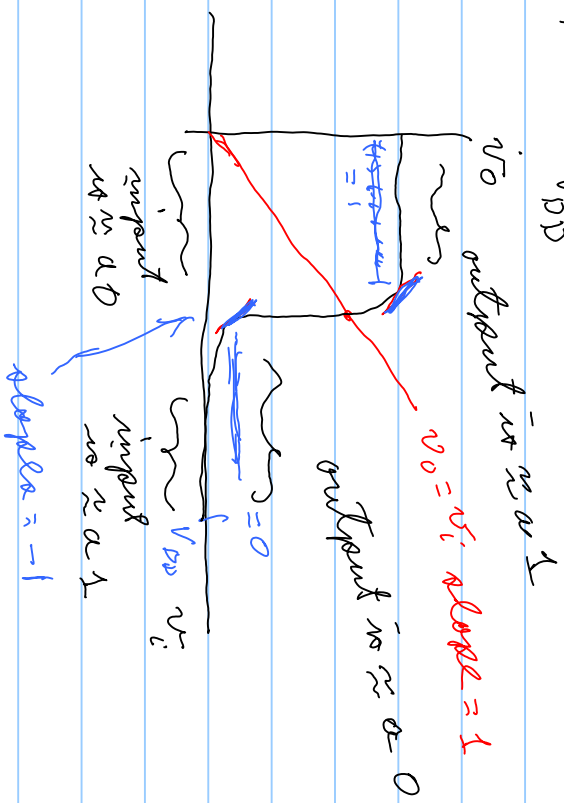 V_DD
v_o
output is ≈ a 1
v_o = v_i slope = 1
= 1
output is ≈ a 0
= 0
V_DD
v_i
input
is ≈ a 0
input
is ≈ a 1
slopes = -1